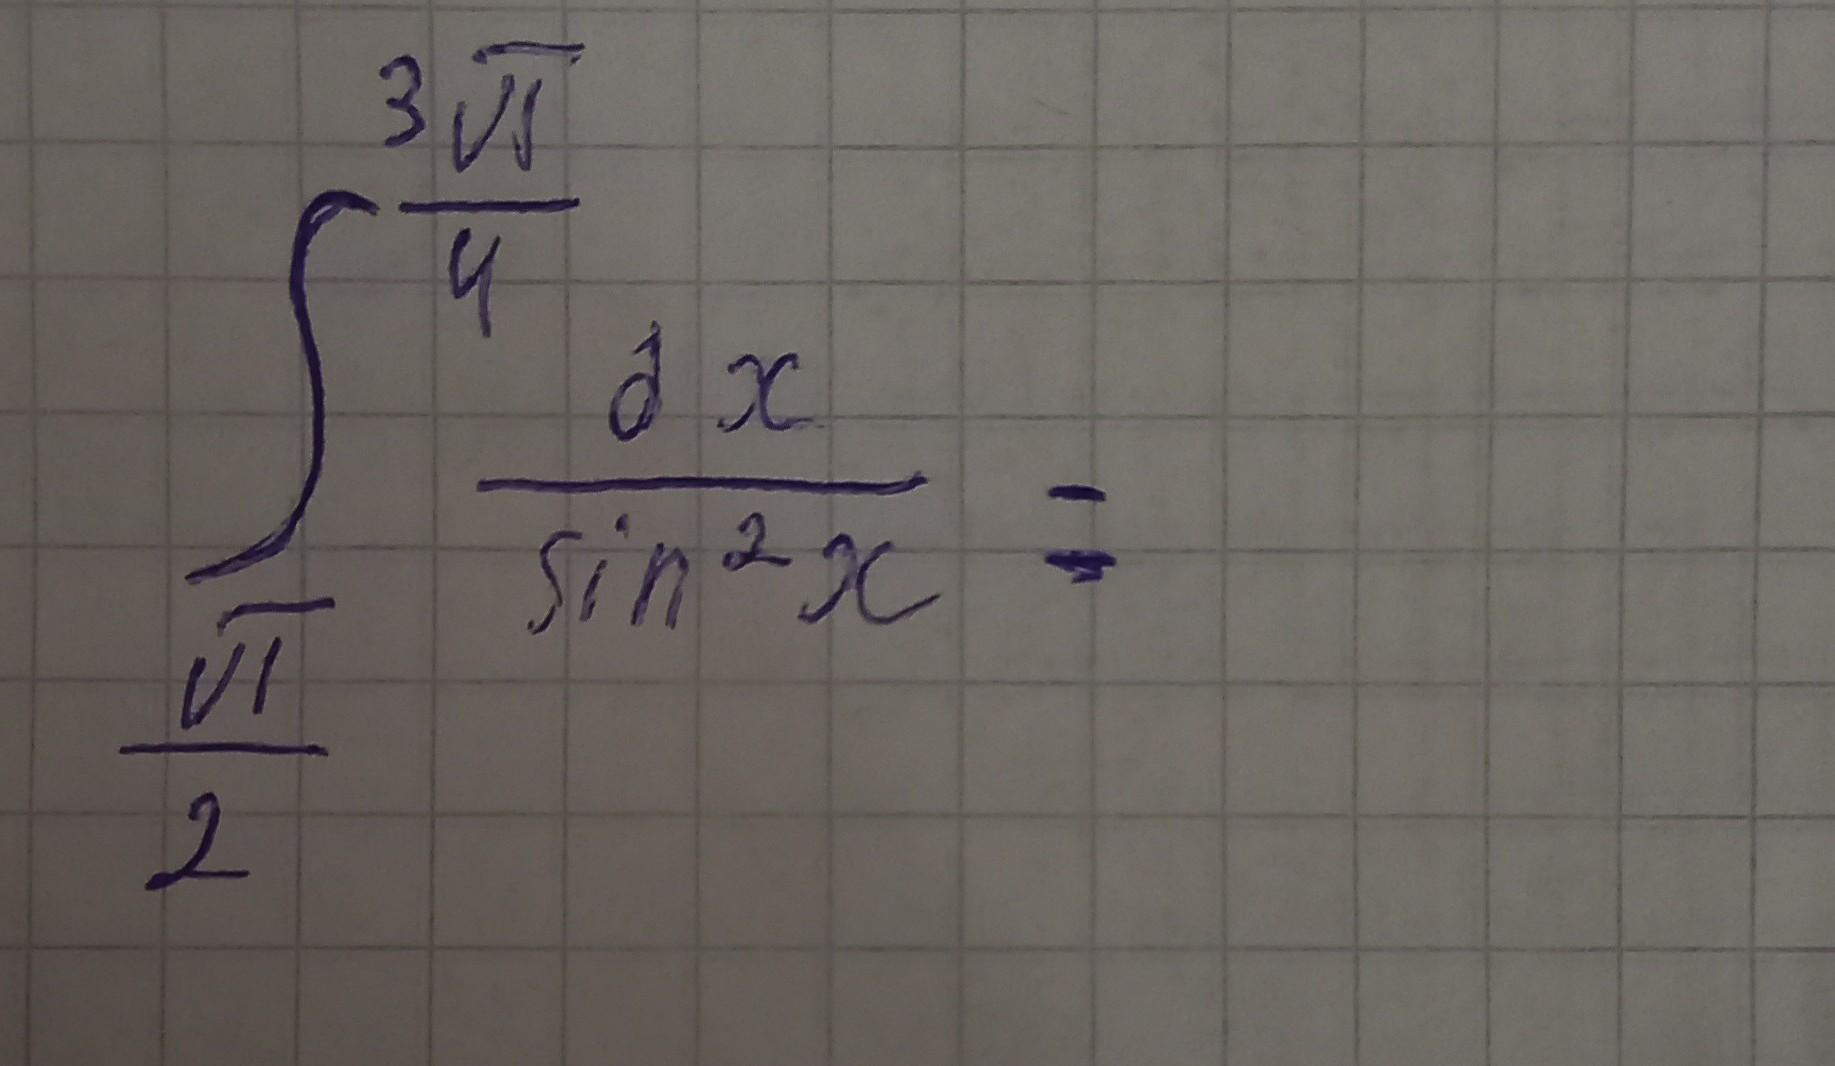 ∫_{π/2}^{3π/4} dx / sin²x =